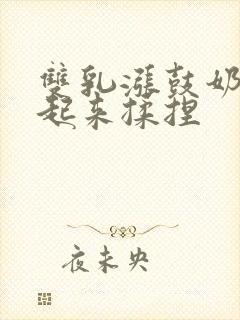 雙乳漲鼓奶
起来揉捏
夜未央